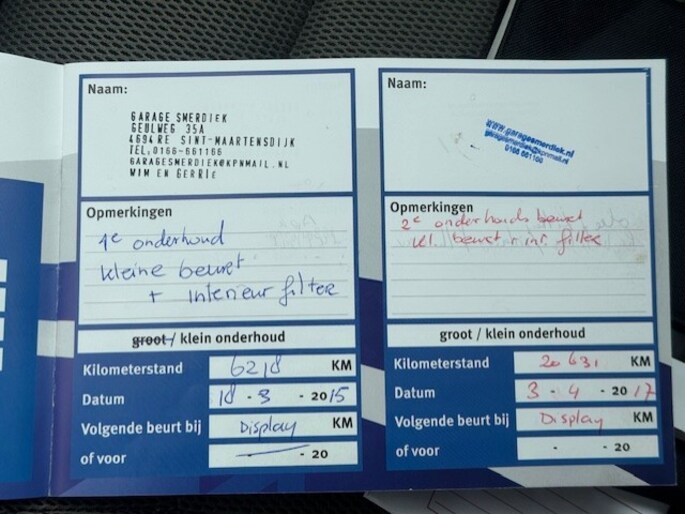 Naam:
GARAGE SMERDIEK
GEULWEG 35A
4694RE SINT-MAARTENSDIJK
TEL.0166-661166
GARAGESMERDIEK@KPNMAIL.NL
WIM EN GERRIE
Opmerkingen
1e onderhoud
kleine beurt
+ interieur filter
groot / klein onderhoud
Kilometerstand 6218 KM
Datum 18 - 3 - 2015
Volgende beurt bij Display KM
of voor - 20
Naam:
www.garagesmerdiek.nl
garagesmerdiek@kpnmail.nl
0166 661166
Opmerkingen
2e onderhouds beurt
kl. beurt + int. filter
groot / klein onderhoud
Kilometerstand 20631 KM
Datum 3 - 4 - 2017
Volgende beurt bij Display KM
of voor - - 20